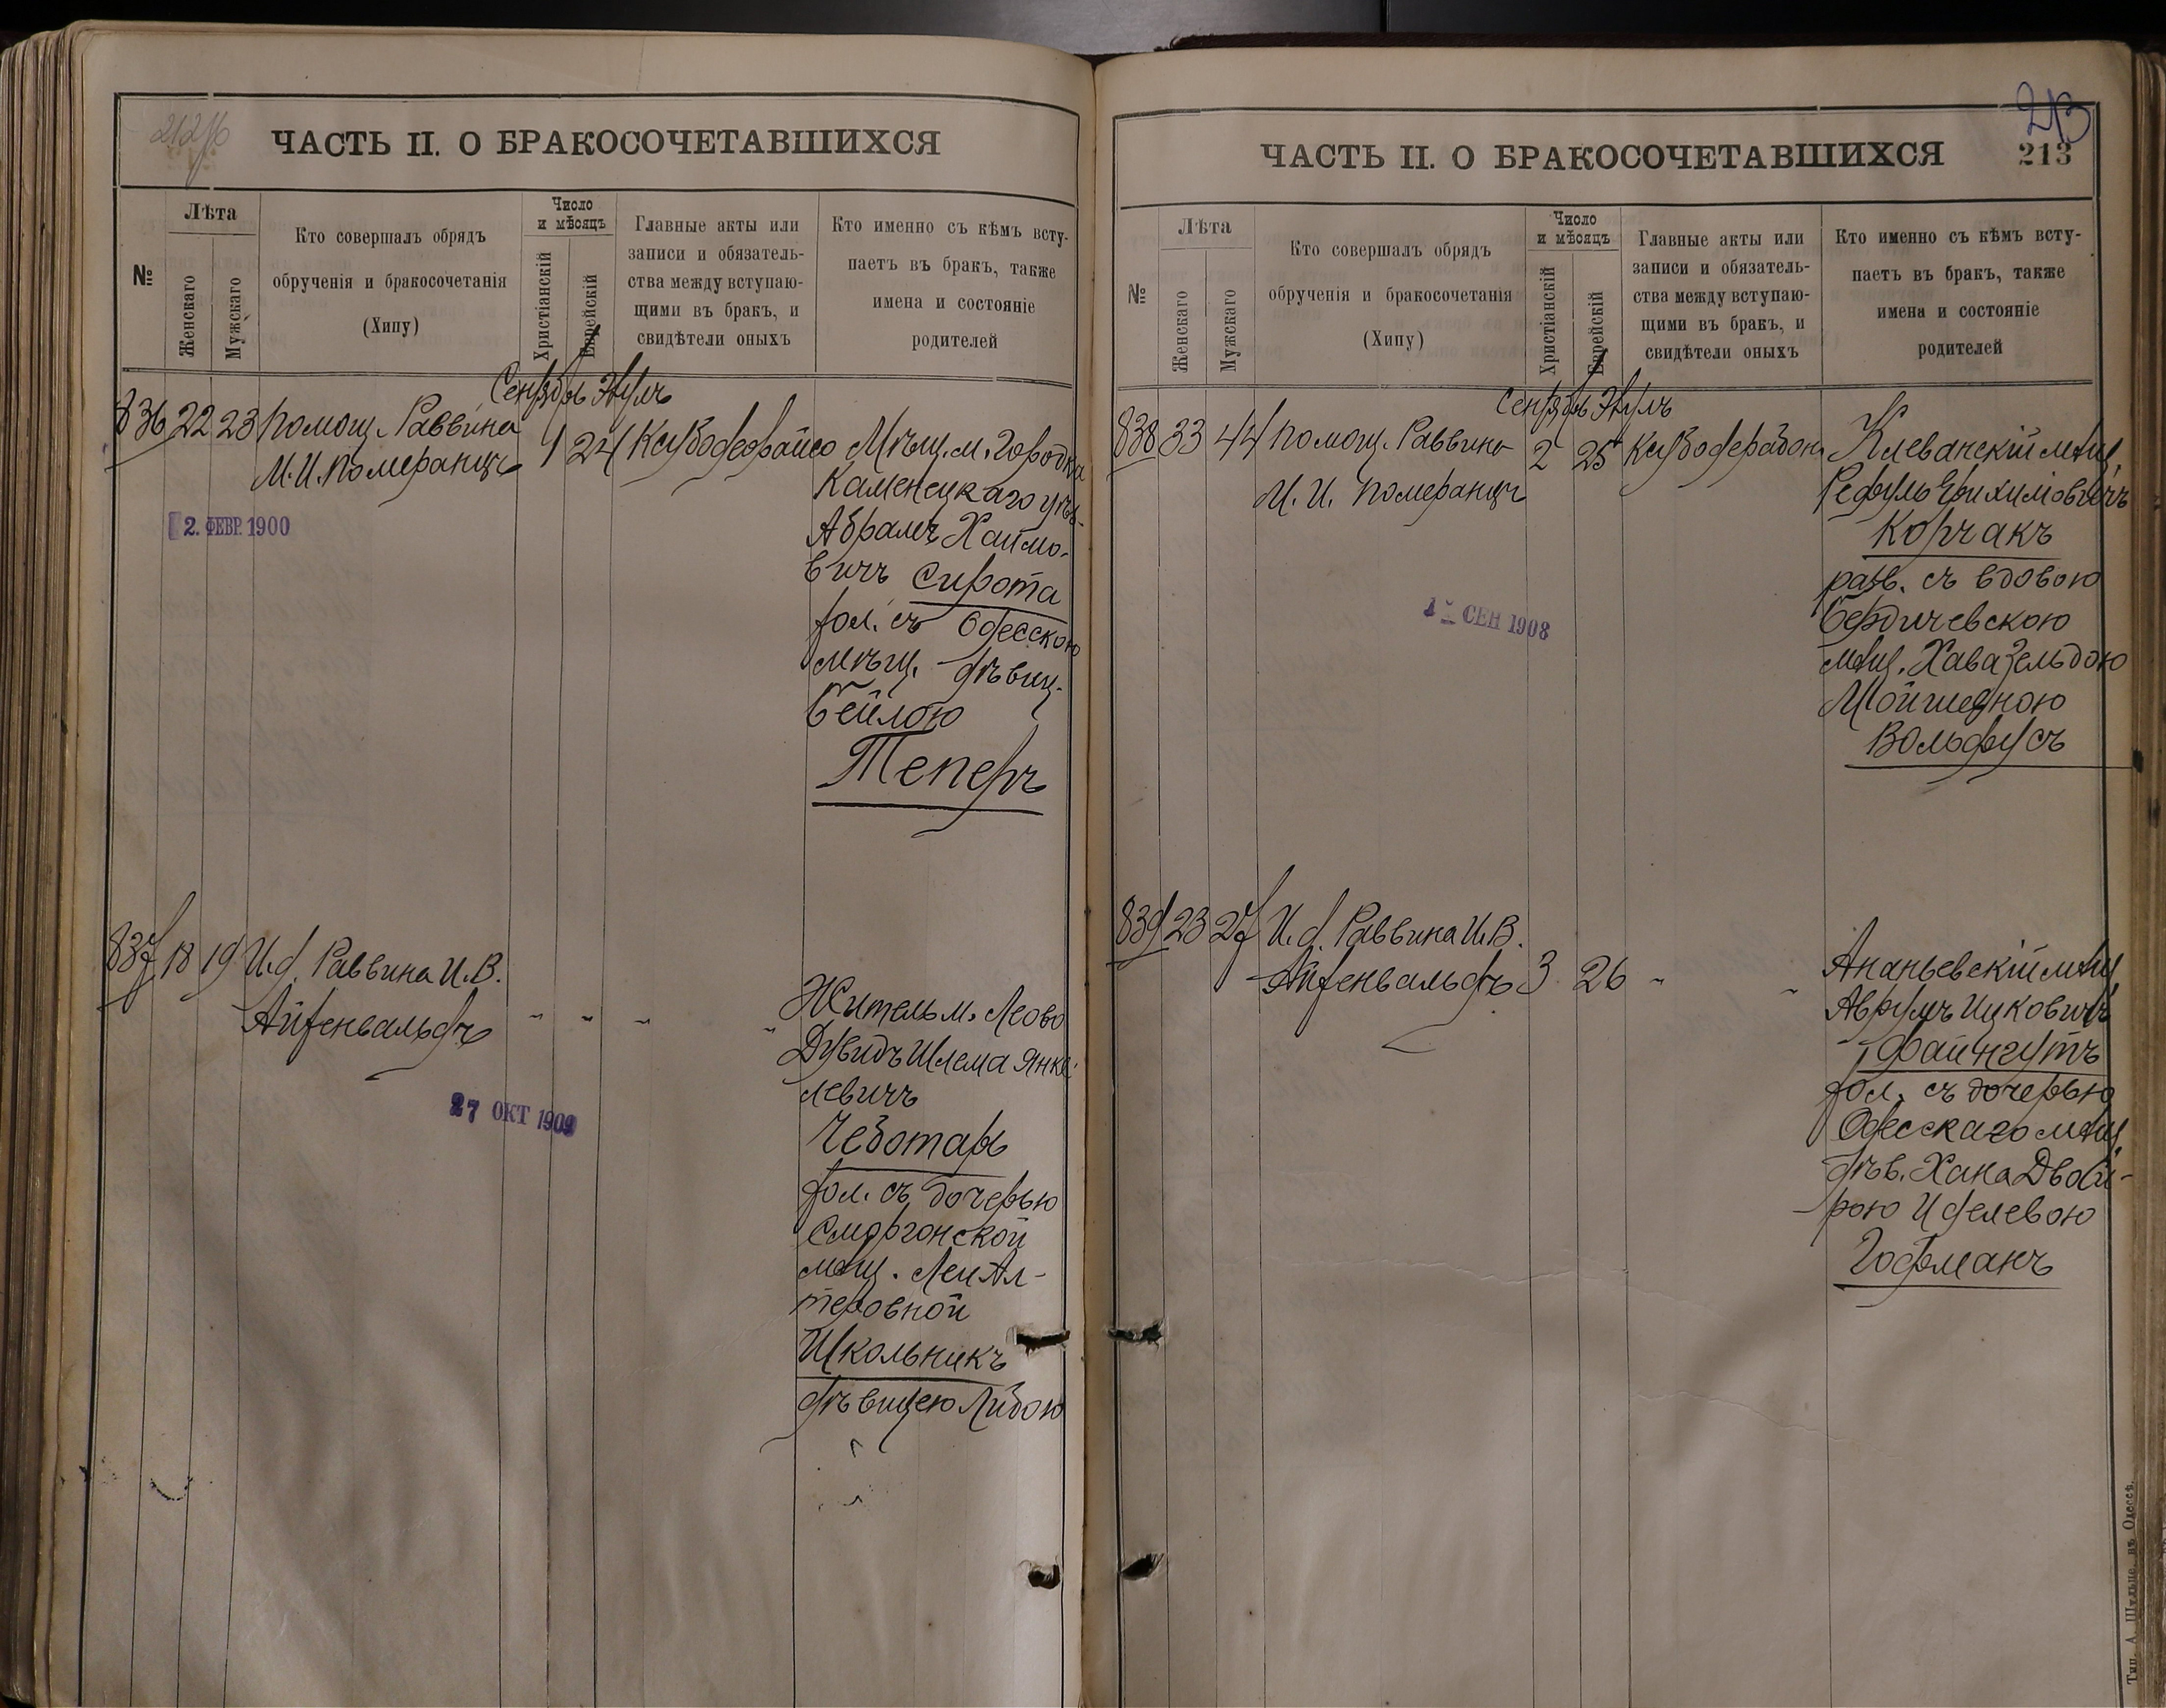 212
ЧАСТЬ II. О БРАКОСОЧЕТАВШИХСЯ
№
Лѣта
Женскаго
Мужскаго
Кто совершалъ обрядъ
обрученія и бракосочетанія
(Хипу)
Число
и мѣсяцъ
Христіанскій
Еврейскій
Главные акты или
записи и обязатель-
ства между вступаю-
щими въ бракъ, и
свидѣтели оныхъ
Кто именно съ кѣмъ всту-
паетъ въ бракъ, также
имена и состояніе
родителей
Сентябрь Элулъ
836 22 23 Помощ. Раввина
М. И. Померанцъ
1 24
Мѣщ. м. Городка
Каменецкаго уѣз.
Абрамъ Хаимо-
вичъ Сирота
хол. съ Одесскою
мѣщ. дѣвиц.
Бейлою
Теперъ
2. ФЕВР. 1900
837 18 19 И.д. Раввина И. В.
Айзенвальдъ
" " " "
Житель м. Леово
Дувидъ Шлема Янке-
левичъ
Чеботарь
хол. съ дочерью
Сморгонской
мѣщ. Леи Ал-
теровной
Школьникъ
дѣвицею Любою
27 ОКТ 1909
213
ЧАСТЬ II. О БРАКОСОЧЕТАВШИХСЯ
213
№
Лѣта
Женскаго
Мужскаго
Кто совершалъ обрядъ
обрученія и бракосочетанія
(Хипу)
Число
и мѣсяцъ
Христіанскій
Еврейскій
Главные акты или
записи и обязатель-
ства между вступаю-
щими въ бракъ, и
свидѣтели оныхъ
Кто именно съ кѣмъ всту-
паетъ въ бракъ, также
имена и состояніе
родителей
Сентябрь Элулъ
838 33 44 Помощ. Раввина
М. И. Померанцъ
2 25
Клеванскій мѣщ.
Корчакъ
разв. съ вдовою
Бердичевскою
мѣщ. Хава Зельдою
Мошковною
Вольфусъ
СЕН 1908
839 23 27 И. д. Раввина И. В.
Айзенвальдъ
3 26 " "
Ананьевскій мѣщ.
Аврумъ Ицковичъ
Файнгутъ
хол. съ дочерью
Одесскаго мѣщ.
дѣв. Хана Двой-
рою Иделевою
Гофманъ
Тип. А. Шульце, въ Одессѣ.